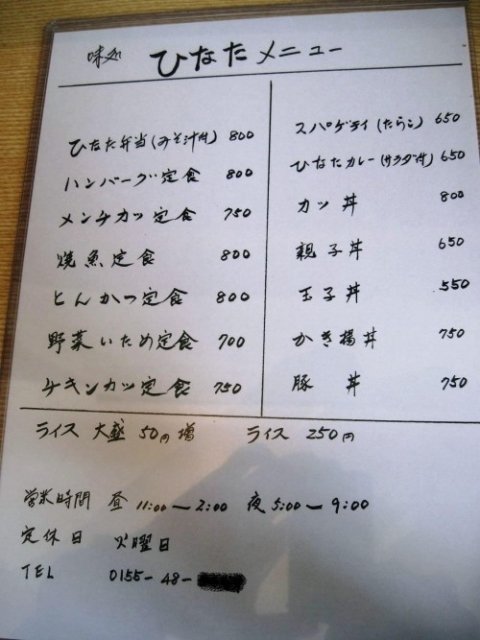 味処 ひなた メニュー
ひなた弁当(みそ汁付) 800
ハンバーグ定食 800
メンチカツ定食 750
焼魚定食 800
とんかつ定食 800
野菜いため定食 700
チキンカツ定食 750
スパゲティ(たらこ) 650
ひなたカレー(サラダ付) 650
カツ丼 800
親子丼 650
玉子丼 550
かき揚丼 750
豚丼 750
ライス 大盛 50円増 ライス 250円
営業時間 昼 11:00～2:00 夜 5:00～9:00
定休日 火曜日
TEL 0155-48-